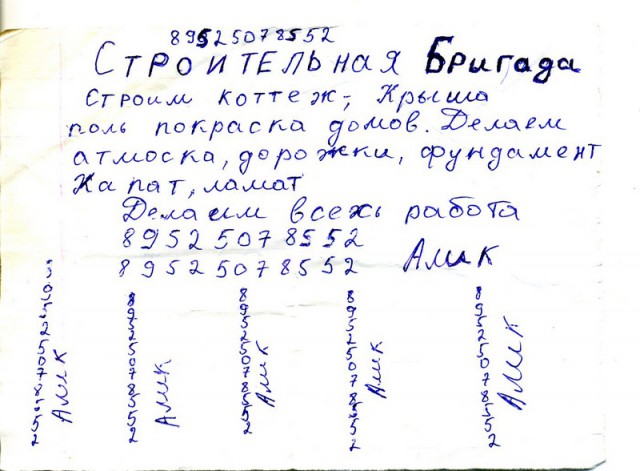 89525078552
Строительная Бригада
Строим коттеж-, Крыша
поль покраска домов. Делаем
атмоска, дорожки, фундамент
Капат, ламат
Делаем всехь работа
89525078552
89525078552 Алик
89525078552 Алик
89525078552 Алик
89525078552 Алик
89525078552 Алик